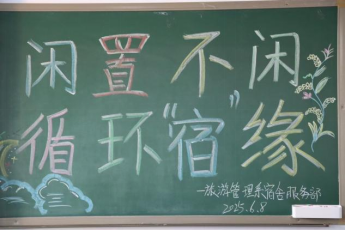 闲置不闲
循环"宿"缘
一旅游管理系宿舍服务部
2025.6.8